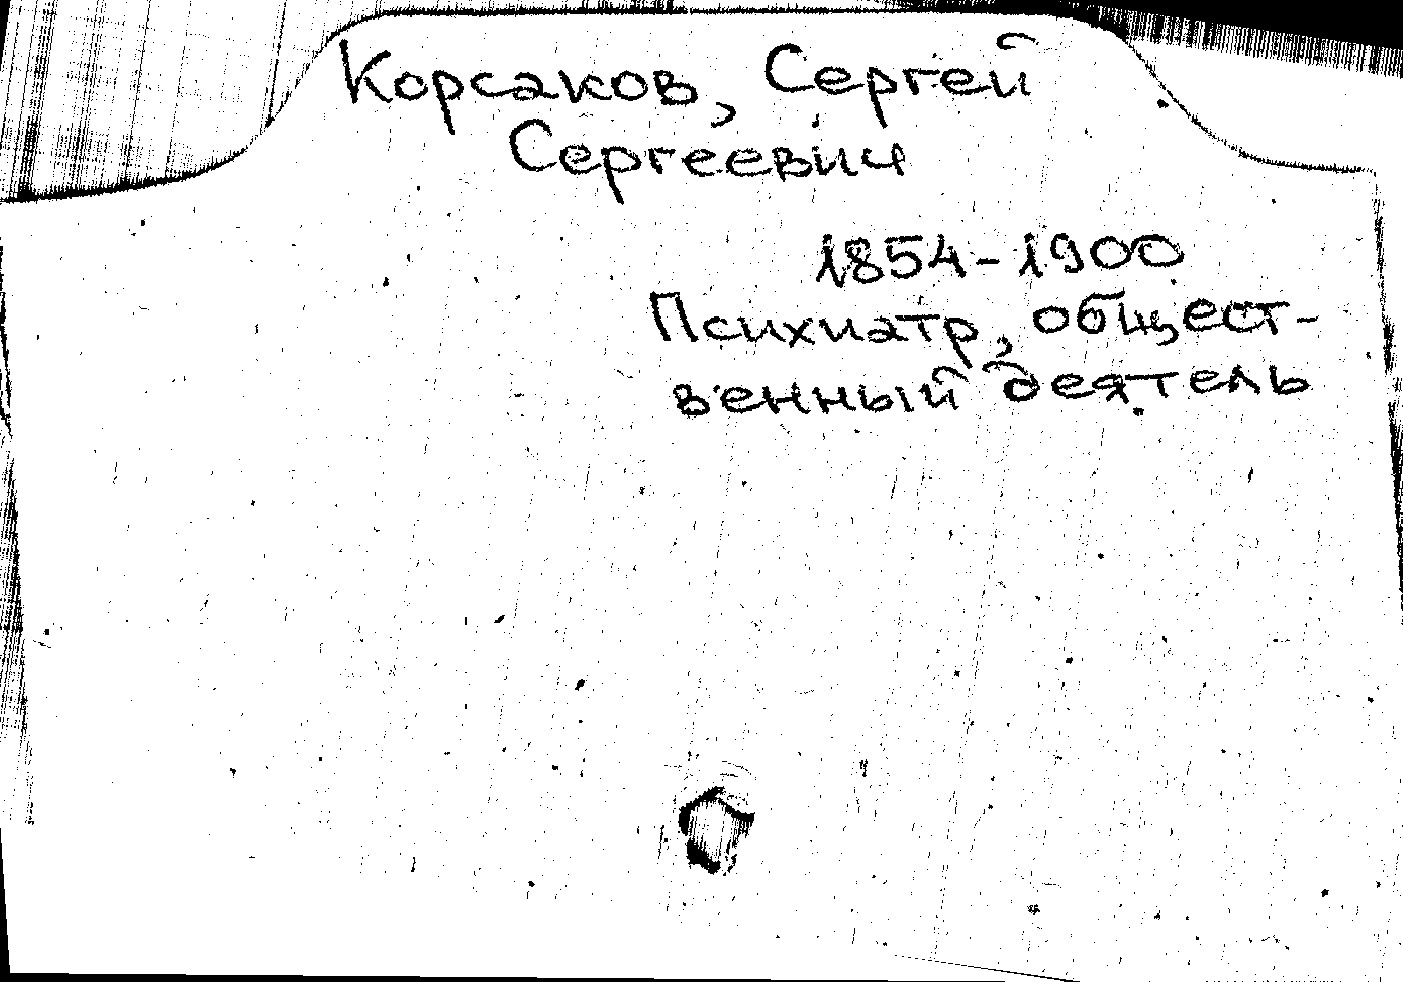 Корсаков, Сергей
Сергеевич
1854-1900
Психиатр, общест-
венный деятель